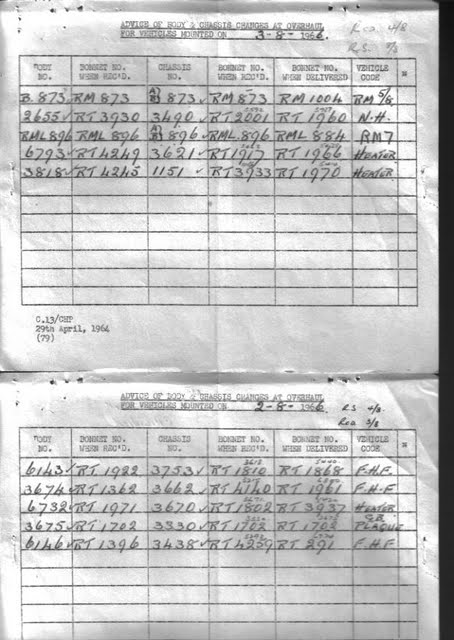 ADVICE OF BODY & CHASSIS CHANGES AT OVERHAUL
FOR VEHICLES MOUNTED ON 3-8- 1966.
Rca 4/8
R.S. 5/8
BODY NO. BONNET NO. WHEN REC'D. CHASSIS NO. BONNET NO. WHEN REC'D. BONNET NO. WHEN DELIVERED VEHICLE CODE
B.873 RM 873 A) B) 873 RM 873 RM 1004 RM 5/8
2655 RT 3930 3490 RT 2001 RT 1960 N.H.
RML 896 RML 896 A) B) 896 RML 896 RML 884 RM7
6793 RT 4249 3621 RT 1917 RT 1966 HEATER
3818 RT 4245 1151 RT 3933 RT 1970 HEATER
C.13/CHP
29th April, 1964
(79)
ADVICE OF BODY & CHASSIS CHANGES AT OVERHAUL
FOR VEHICLES MOUNTED ON 2-8- 1966.
RS 4/8
Rca 3/8
BODY NO. BONNET NO. WHEN REC'D. CHASSIS NO. BONNET NO. WHEN REC'D. BONNET NO. WHEN DELIVERED VEHICLE CODE
6143 RT 1922 3753 RT 1810 RT 1868 F.H.F.
3674 RT 1362 3662 RT 4140 RT 1961 F.H.F
6732 RT 1971 3670 RT 1802 RT 3937 HEATER
3675 RT 1702 3330 RT 1702 RT 1702 PLAQUE
6146 RT 1396 3438 RT 4259 RT 291 F.H.F